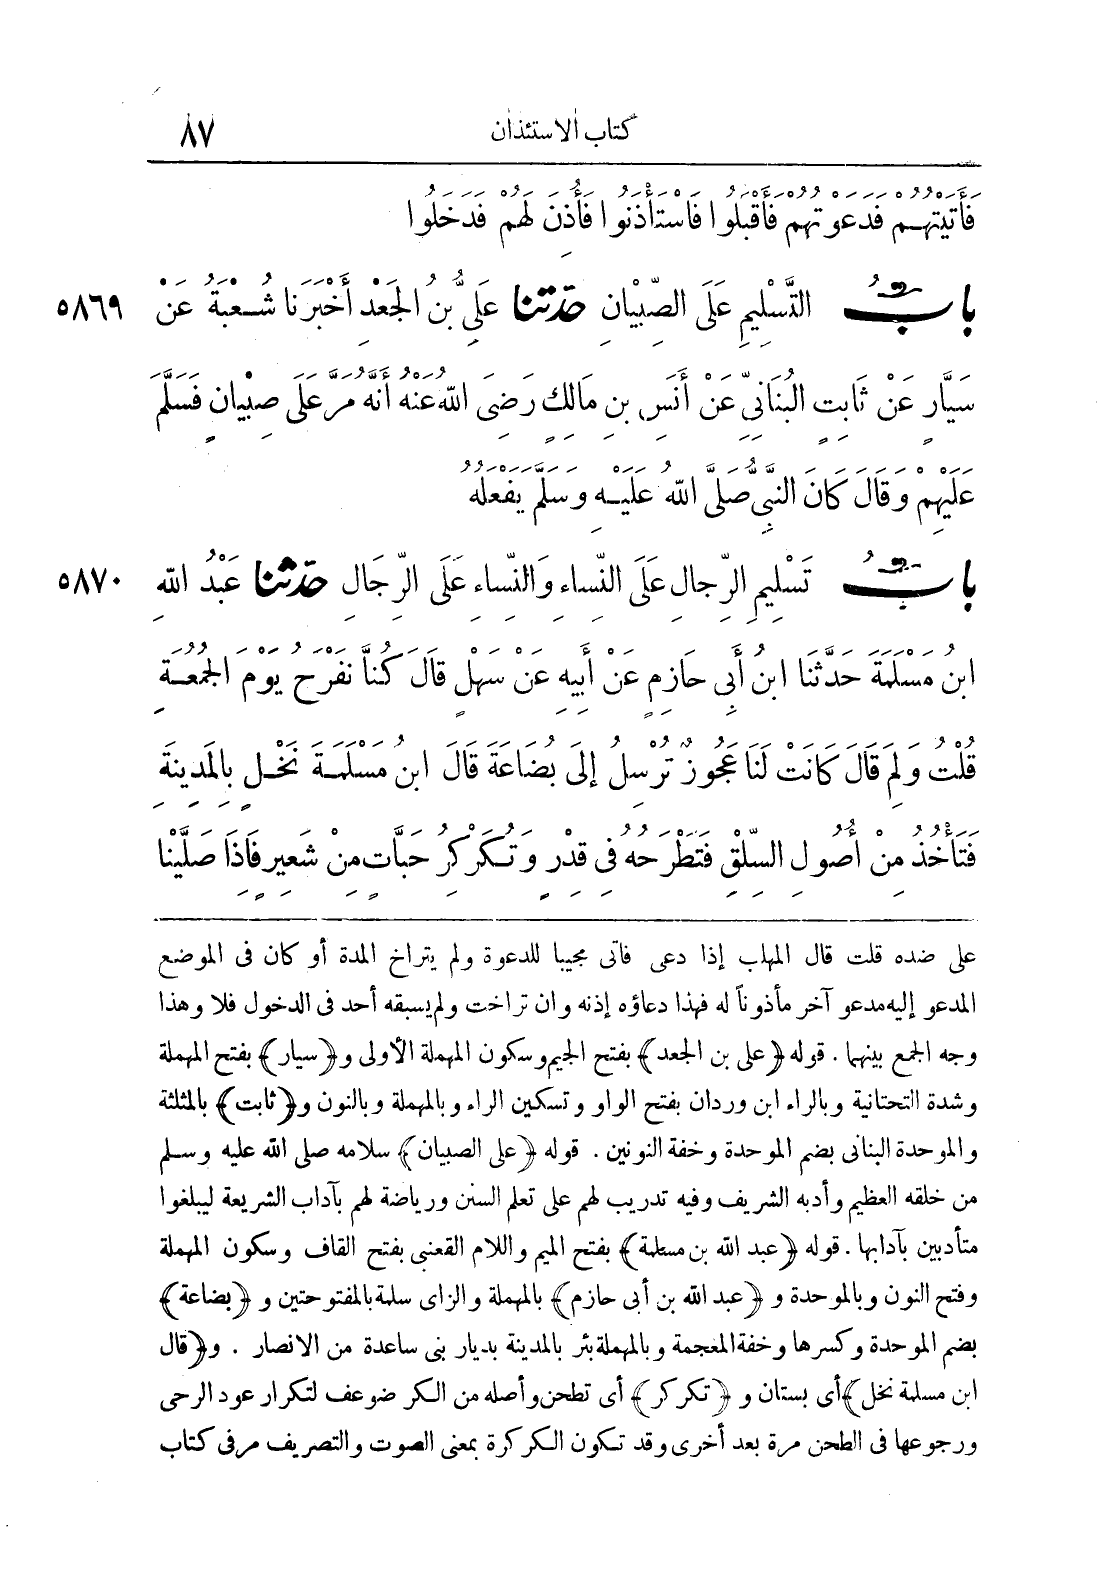 كتاب الاستئذان ٨٧
فَأَتَيْتُهُمْ فَدَعَوْتُهُمْ فَأَقْبَلُوا فَاسْتَأْذَنُوا فَأُذِنَ لَهُمْ فَدَخَلُوا
بابُ التَّسْلِيمِ عَلَى الصِّبْيَانِ حدّثنا عَلِيُّ بْنُ الجَعْدِ أَخْبَرَنَا شُعْبَةُ عَنْ ٥٨٦٩
سَيَّارٍ عَنْ ثَابِتٍ البُنَانِيِّ عَنْ أَنَسِ بنِ مَالِكٍ رَضِيَ اللهُ عَنْهُ أَنَّهُ مَرَّ عَلَى صِبْيَانٍ فَسَلَّمَ
عَلَيْهِمْ وَقَالَ كَانَ النَّبِيُّ صَلَّى اللهُ عَلَيْهِ وَسَلَّمَ يَفْعَلُهُ
بابُ تَسْلِيمِ الرِّجَالِ عَلَى النِّسَاءِ وَالنِّسَاءِ عَلَى الرِّجَالِ حدّثنا عَبْدُ اللهِ ٥٨٧٠
ابنُ مَسْلَمَةَ حَدَّثَنَا ابنُ أَبِي حَازِمٍ عَنْ أَبِيهِ عَنْ سَهْلٍ قَالَ كُنَّا نَفْرَحُ يَوْمَ الجُمُعَةِ
قُلْتُ وَلِمَ قَالَ كَانَتْ لَنَا عَجُوزٌ تُرْسِلُ إِلَى بُضَاعَةَ قَالَ ابنُ مَسْلَمَةَ نَخْلٍ بِالمَدِينَةِ
فَتَأْخُذُ مِنْ أُصُولِ السِّلْقِ فَتَطْرَحُهُ فِي قِدْرٍ وَتُكَرْكِرُ حَبَّاتٍ مِنْ شَعِيرٍ فَاذَا صَلَّيْنَا
على ضده قلت قال المهلب إذا دعى فاتى مجيبا للدعوة ولم يتراخ المدة أو كان فى الموضع
المدعو إليه مدعو آخر مأذوناً له فهذا دعاؤه إذنه وان تراخت ولم يسبقه أحد فى الدخول فلا وهذا
وجه الجمع بينهما . قوله ﴿على بن الجعد﴾ بفتح الجيم وسكون المهملة الأولى و﴿سيار﴾ بفتح المهملة
وشدة التحتانية وبالراء ابن وردان بفتح الواو وتسكين الراء وبالمهملة وبالنون و﴿ثابت﴾ بالمثلثة
والموحدة البنانى بضم الموحدة وخفة النونين . قوله ﴿على الصبيان﴾ سلامه صلى الله عليه وسلم
من خلقه العظيم وأدبه الشريف وفيه تدريب لهم على تعلم السنن ورياضة لهم بآداب الشريعة ليبلغوا
متأدبين بآدابها . قوله ﴿عبد الله بن مسلمة﴾ بفتح الميم واللام القعنبى بفتح القاف وسكون المهملة
وفتح النون وبالموحدة و﴿عبد الله بن أبى حازم﴾ بالمهملة والزاى سلمة بالمفتوحتين و﴿بضاعة﴾
بضم الموحدة وكسرها وخفة المعجمة وبالمهملة بئر بالمدينة بديار بنى ساعدة من الانصار . و﴿قال
ابن مسلمة نخل﴾ أى بستان و﴿تكركر﴾ أى تطحن وأصله من الكر ضوعف لتكرار عود الرحى
ورجوعها فى الطحن مرة بعد أخرى وقد تكون الكركرة بمعنى الصوت والتصريف مر فى كتاب